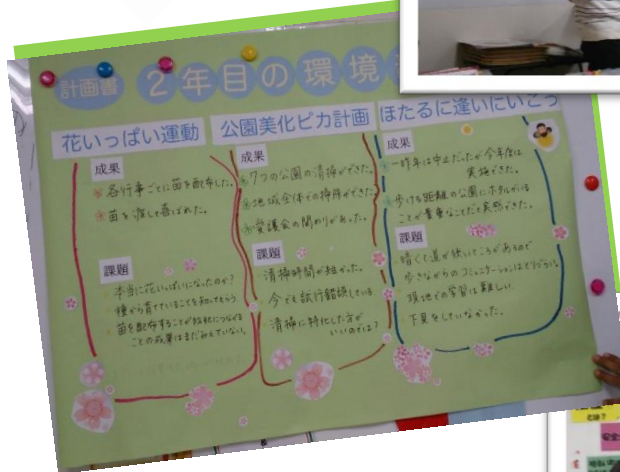 計画書 2年目の環境
花いっぱい運動
成果
各行事ごとに苗を配布した。
苗を渡して喜ばれた。
課題
本当に花いっぱいになったのか?
種から育てていることを知ってもらう
苗を配布することが
ことの成果はまだみえていない。
公園美化ピカ計画
成果
7つの公園の清掃ができた。
地域全体での掃除ができた。
の関わりがあった。
課題
清掃時間が短かった。
今でも試行錯誤している
清掃に特化した方が
いいのでは?
ほたるに逢いにいこう
成果
一昨年は中止だったが今年度は
実施できた。
歩ける距離の公園にホタルがいる
ことが貴重なことだと実感できた。
課題
暗くて道が狭いところがあるので
歩きながらのコミュニケーションは
現地での学習は難しい
下見をしていなかった。